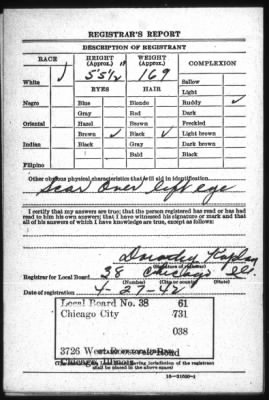 REGISTRAR'S REPORT
DESCRIPTION OF REGISTRANT
RACE
HEIGHT (Approx.)
WEIGHT (Approx.)
COMPLEXION
White ✓
5'5½"
169
Sallow
Light
EYES
HAIR
Ruddy ✓
Negro
Blue
Blonde
Gray
Red
Dark
Freckled
Oriental
Hazel
Brown
Light brown
Brown ✓
Black ✓
Dark brown
Indian
Black
Gray
Black
Bald
Filipino
Other obvious physical characteristics that will aid in identification
Scar over left eye
I certify that my answers are true; that the person registered has read or has had
read to him his own answers; that I have witnessed his signature or mark and that
all of his answers of which I have knowledge are true, except as follows:
Dorothy Kaplan
(Signature of registrar)
Registrar for Local Board 38 Chicago Ill.
(Number) (City or county) (State)
Date of registration 4-27-42
Local Board No. 38 61
Chicago City 731
038
3726 West Road
Chicago, Illinois
(The stamp of the Local Board having jurisdiction of the registrant
shall be placed in the above space)